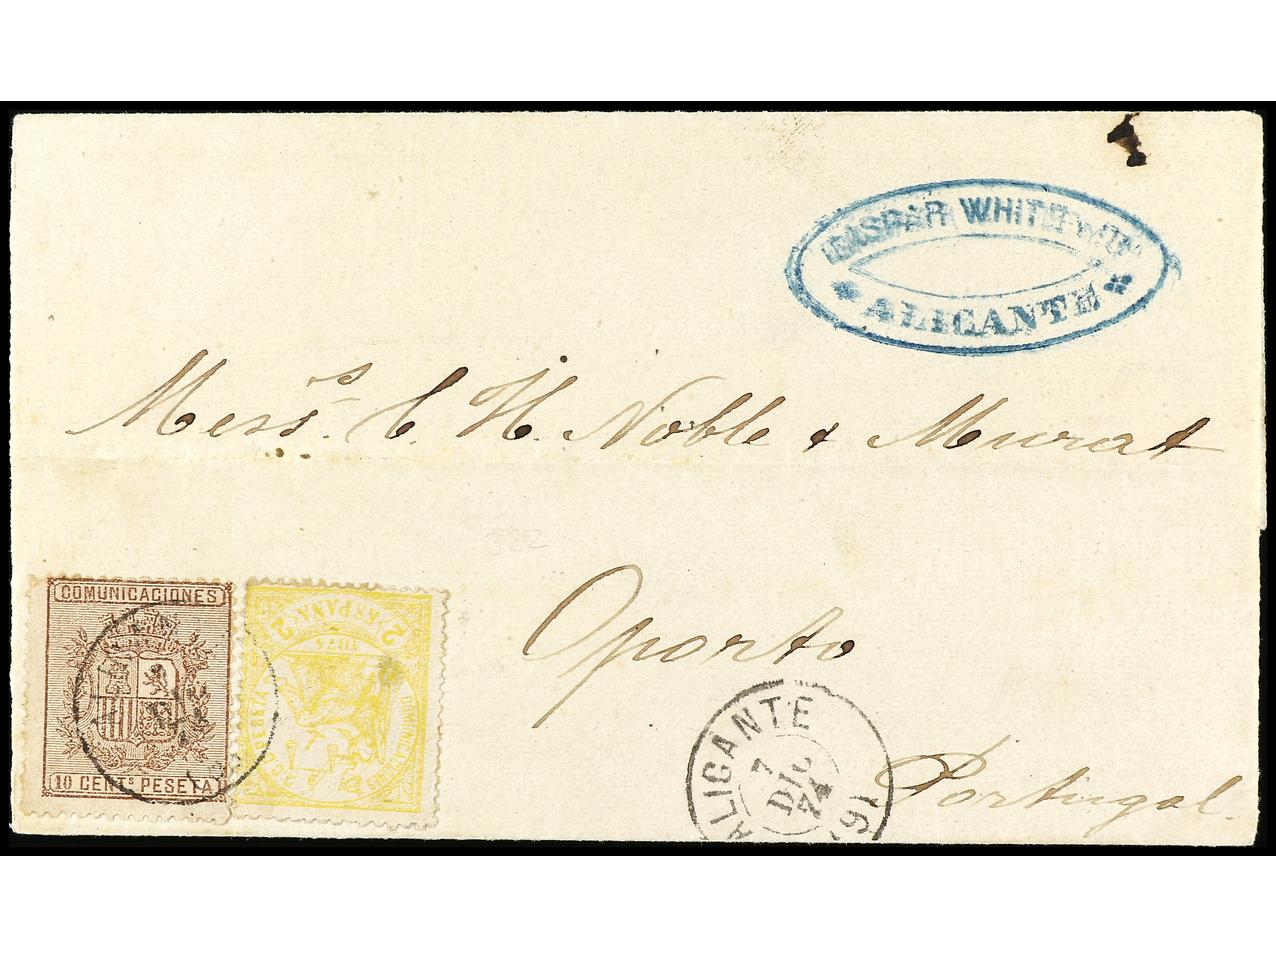 GASPAR WHITE
ALICANTE
Mess.rs C. H. Noble & Murat
322
Oporto
Portugal.
COMUNICACIONES
10 CENTS PESETA
2 ESPAÑA 2
1873
COMUNICACIONES
ALICANTE
7
DIC
74
(19)